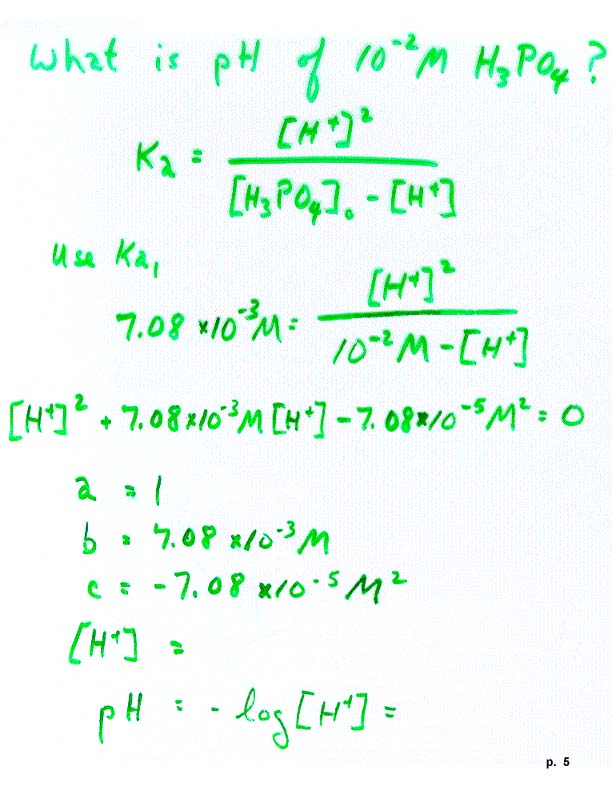 What is pH of 10⁻² M H₃PO₄?
Ka = [H⁺]² / [H₃PO₄]₀ - [H⁺]
Use Ka₁
7.08 × 10⁻³ M = [H⁺]² / 10⁻² M - [H⁺]
[H⁺]² + 7.08 × 10⁻³ M [H⁺] - 7.08 × 10⁻⁵ M² = 0
a = 1
b = 7.08 × 10⁻³ M
c = -7.08 × 10⁻⁵ M²
[H⁺] =
pH = - log [H⁺] =
p. 5